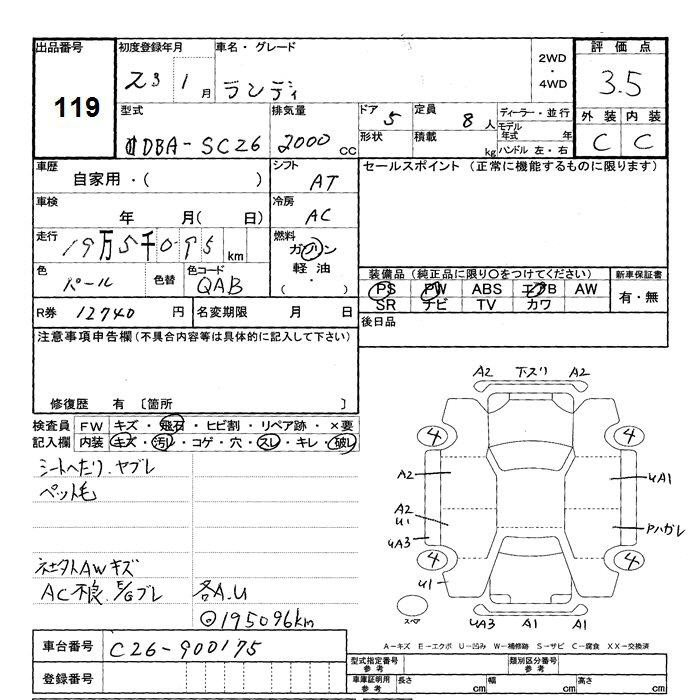 出品番号 初度登録年月 車名・グレード 2WD 評価点
119 23 1 月 ランディ ・ 4WD 3.5
型式 排気量 ドア 5 定員 8 人 ディーラー・並行 外装 内装
DBA-SC26 2000 CC 形状 積載 kg モデル年式 年 C C
ハンドル 左・右
車歴 自家用・( ) シフト AT セールスポイント (正常に機能するものに限ります)
車検 年 月( 日) 冷房 AC
走行 19万5千095 km 燃料 ガソリン
色 パール 色替 色コード QAB 軽油 ・( )
装備品 (純正品に限り○をつけてください) 新車保証書
PS PW ABS エアB AW 有・無
SR ナビ TV カワ
R券 12740 円 名変期限 月 日 後日品
注意事項申告欄(不具合内容等は具体的に記入して下さい)
修復歴 有 〔箇所 〕
検査員 FW キズ・飛石・ヒビ割・リペア跡・×要
記入欄 内装 キズ・汚れ・コゲ・穴・スレ・キレ・破レ
シートへたり、ヤブレ
ペット毛
AWキズ
AC不良、E/Gブレ 各A.U
195096km
A2 下スリ A2
4 4
A2 UA1
A2 U1 Pハガレ
UA3
4 4
U1
スペア UA3 A1 A1
車台番号 C26-900175
登録番号
A-キズ E-エクボ U-凹み W-補修跡 S-サビ C-腐食 XX-交換済
型式指定番号 参考 類別区分番号 参考
車庫証明用 参考 長さ cm 幅 cm 高さ cm